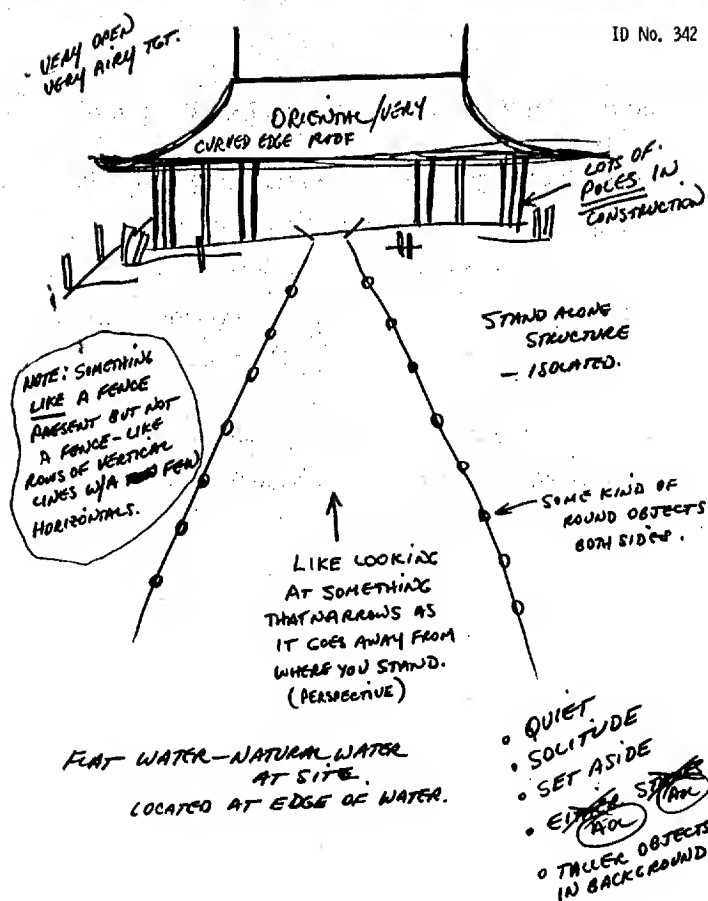 ID No. 342
- VERY OPEN
VERY AIRY TGT.
ORIENTAL/VERY
CURVED EDGE ROOF
LOTS OF
POLES IN
CONSTRUCTION
STAND ALONE
STRUCTURE
- ISOLATED.
NOTE: SOMETHING
LIKE A FENCE
PRESENT BUT NOT
A FENCE-LIKE
ROWS OF VERTICAL
LINES W/A FEW
HORIZONTALS.
SOME KIND OF
ROUND OBJECTS
BOTH SIDES.
LIKE LOOKING
AT SOMETHING
THAT NARROWS AS
IT GOES AWAY FROM
WHERE YOU STAND.
(PERSPECTIVE)
FLAT WATER-NATURAL WATER
AT SITE.
LOCATED AT EDGE OF WATER.
• QUIET
• SOLITUDE
• SET ASIDE
• EITHER
AOL
AOL
• TALLER OBJECTS
IN BACKGROUND